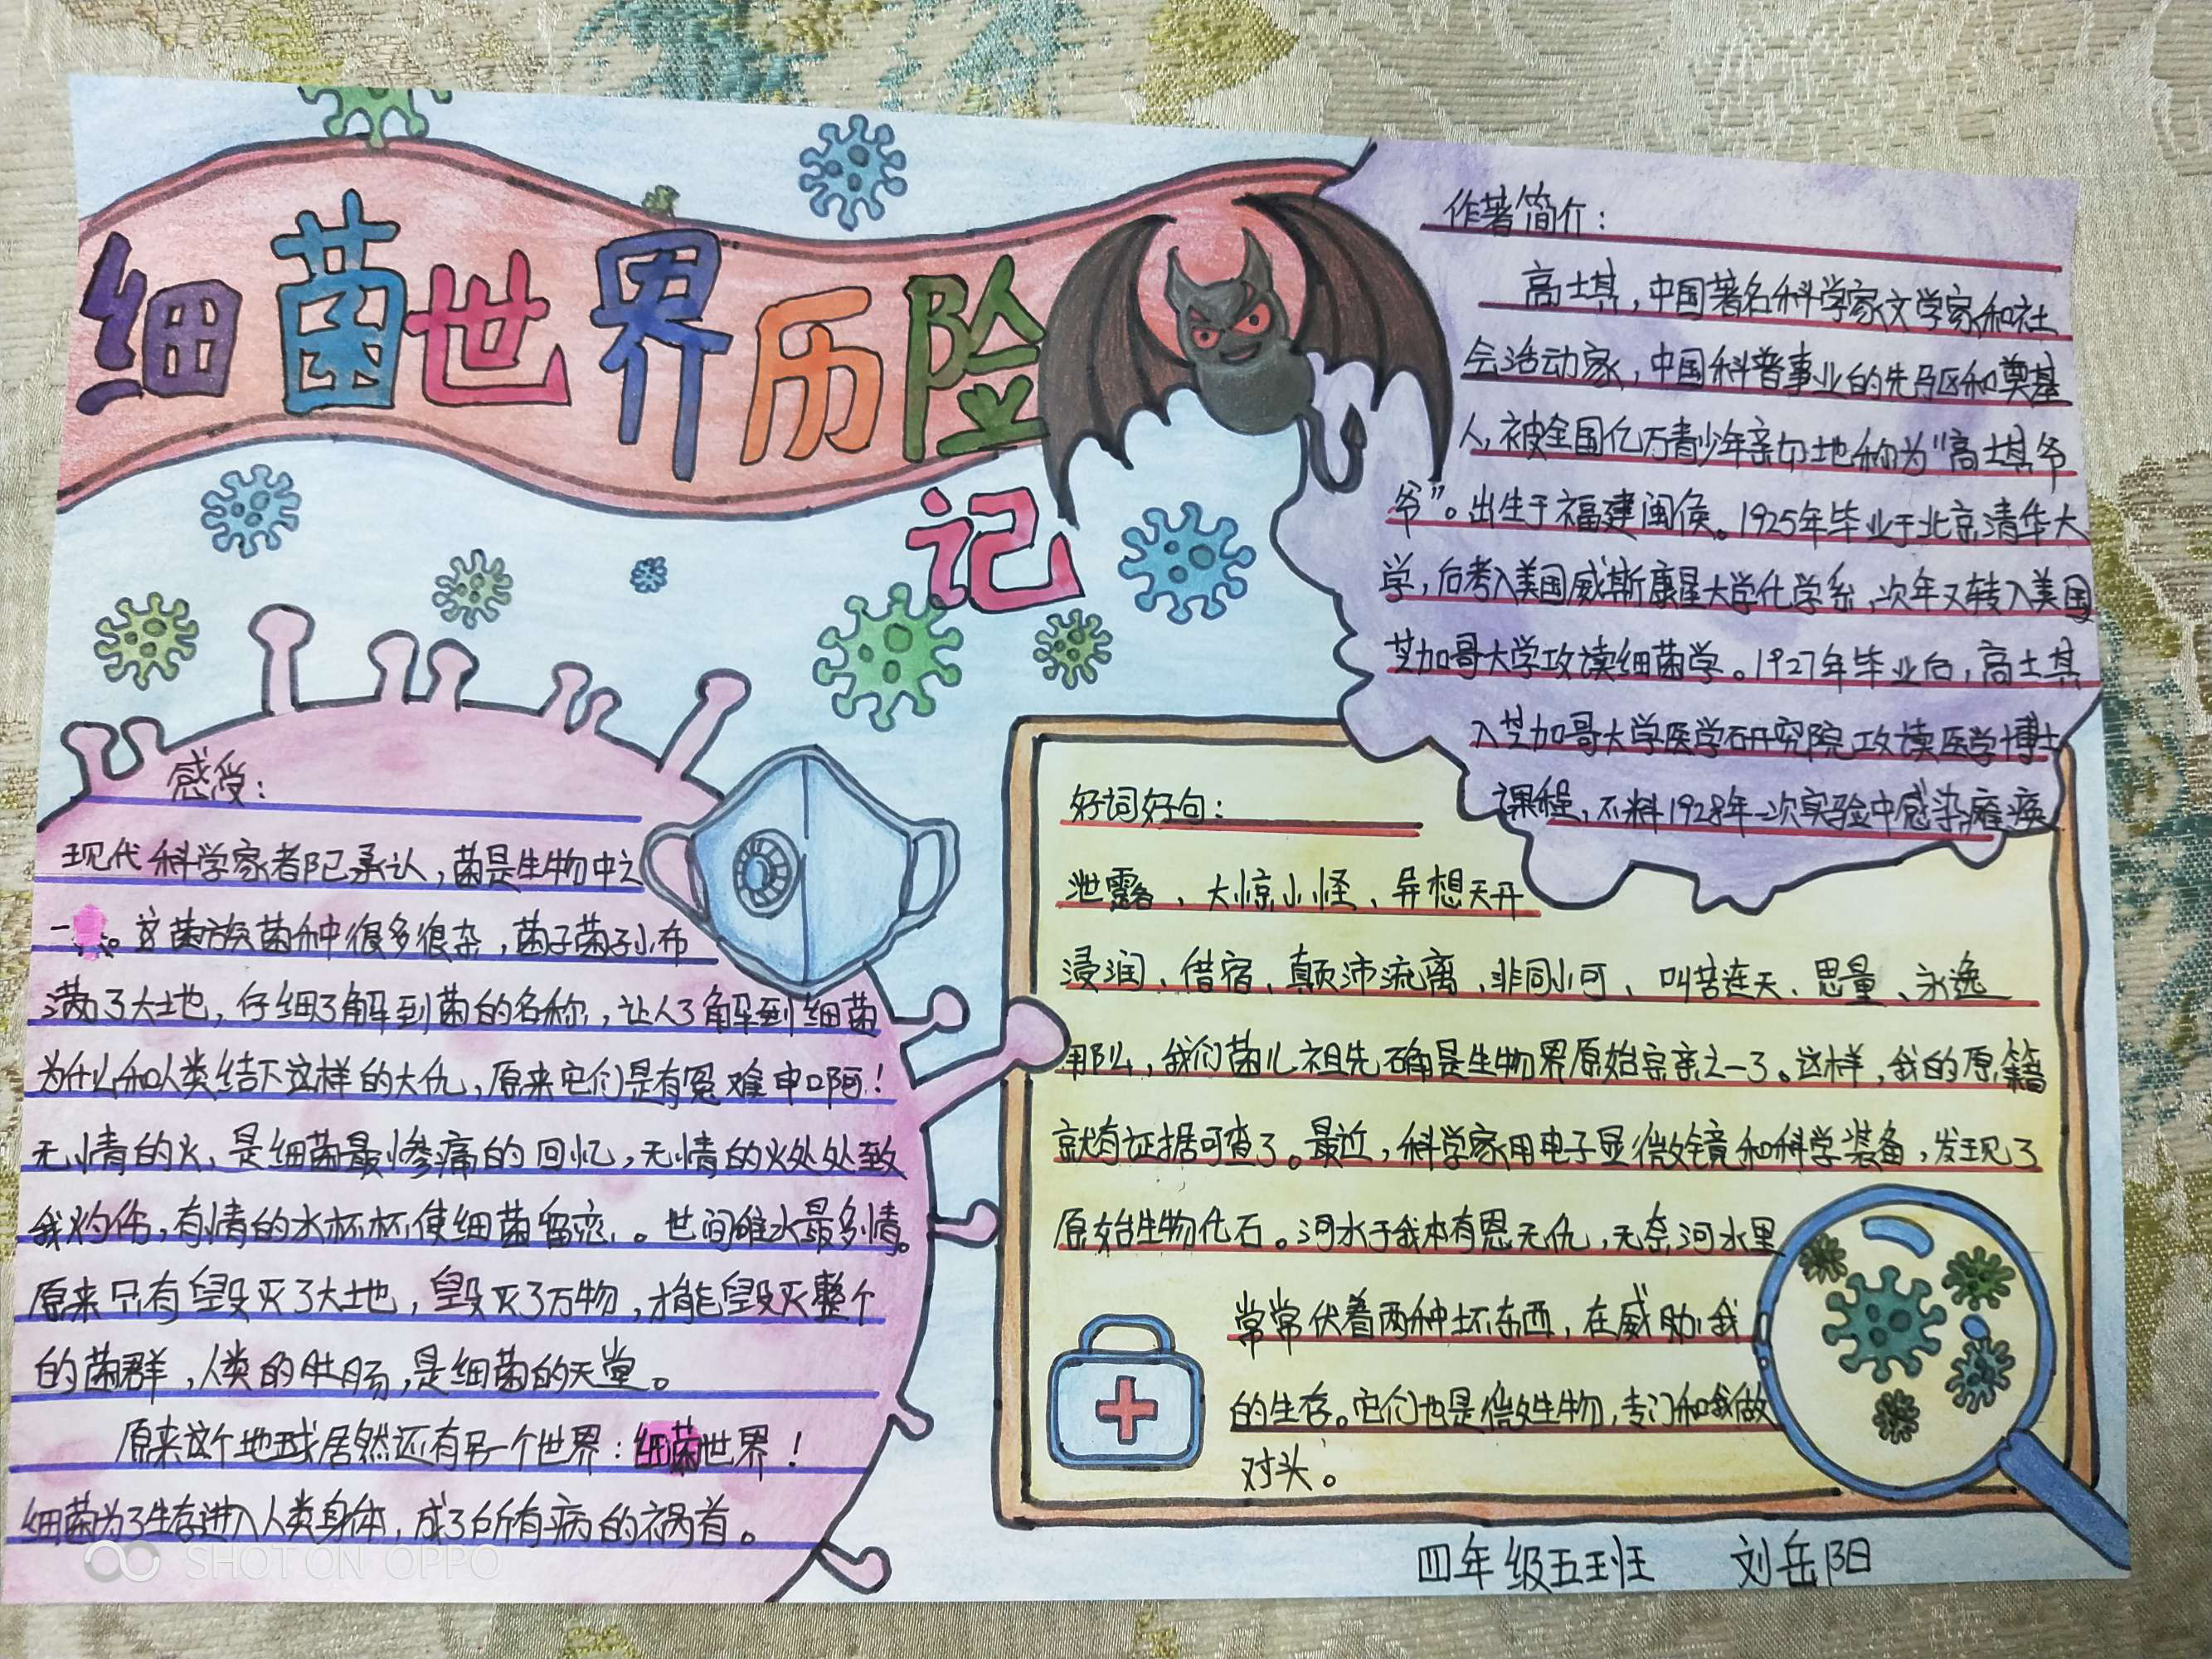 细菌世界历险
记
作著简介：
高士其，中国著名科学家文学家和社
会活动家，中国科普事业的先驱和奠基
人，被全国亿万青少年亲切地称为“高士其爷
爷”。出生于福建闽侯。1925年毕业于北京清华大
学，后考入美国威斯康星大学化学系，次年又转入美国
芝加哥大学攻读细菌学。1927年毕业后，高士其
入芝加哥大学医学研究院攻读医学博士
课程，不料1928年一次实验中感染瘫痪
感受：
现代科学家者阝已承认，菌是生物中之
一。这菌族菌种很多很杂，菌子菌子小布
满了大地，仔细了解到菌的名称，让人了解到细菌
为什么和人类结下这样的大仇，原来它们是有冤难申啊！
无情的火，是细菌最惨痛的回忆，无情的火处处致
我灼伤，有情的水杯杯使细菌留恋。世间唯水最多情。
原来只有毁灭了大地，毁灭了万物，才能毁灭整个
的菌群，人类的肚肠，是细菌的天堂。
原来这个地球居然还有另一个世界：细菌世界！
细菌为了生存进入人类身体，成了所有病的祸首。
好词好句：
泄露、大惊小怪、异想天开
浸润、借宿、颠沛流离、非同小可、叫苦连天、思量、永逸
那么，我们菌儿祖先确是生物界原始宗亲之一了。这样，我的原籍
就有证据可查了。最近，科学家用电子显微镜和科学装备，发现了
原始生物化石。河水于我本有恩无仇，无奈河水里
常常伏着两种坏东西，在威胁我
的生存。它们也是微生物，专门和我做
对头。
四年级五班 刘岳阳
SHOT ON OPPO